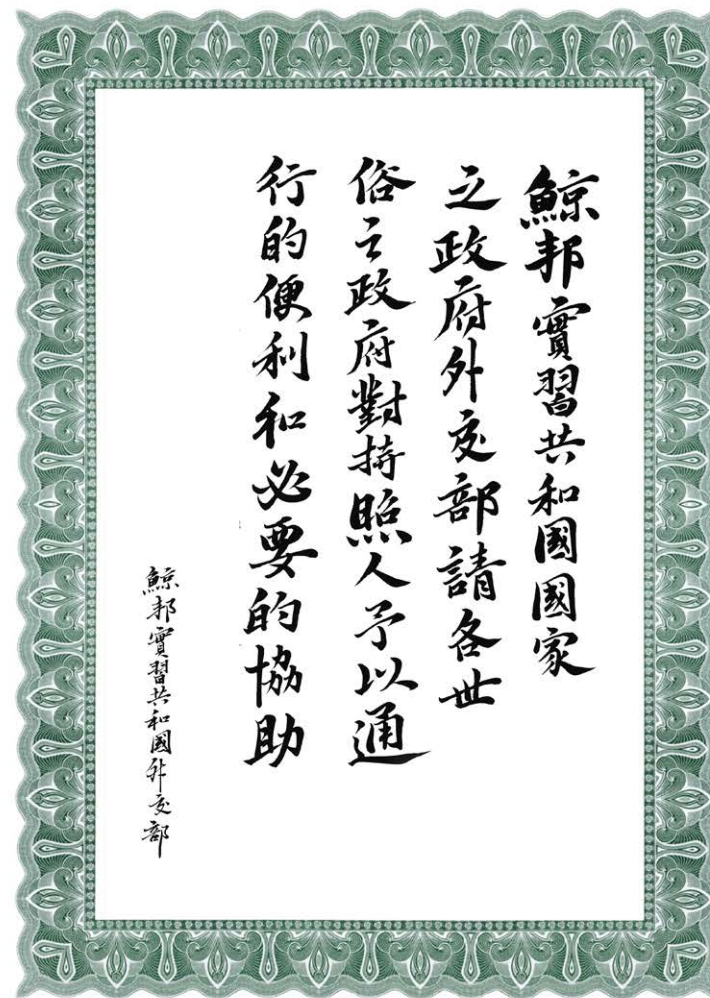 鯨邦實習共和國國家
之政府外交部請各世
俗之政府對持照人予以通
行的便利和必要的協助
鯨邦實習共和國外交部